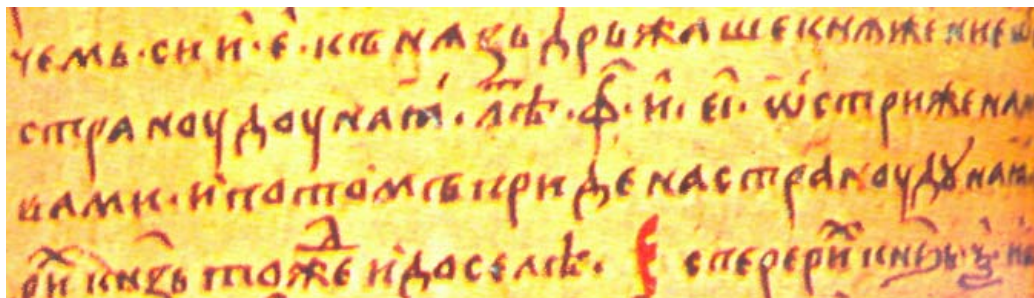 чемь· сии ·е҃· кънѧзь дрьжаше кнѧженіе ѡ
странѹ дѹнаꙗ· лѣт҃· ф҃· и҃· еі҃· ѡстрижена
вами· и потомъ приде на странѹ дꙋнаꙗ
рх҃ кнѧз҃ь тожⷣе и доселѣ· есперерих҃ кнѧз҃ь